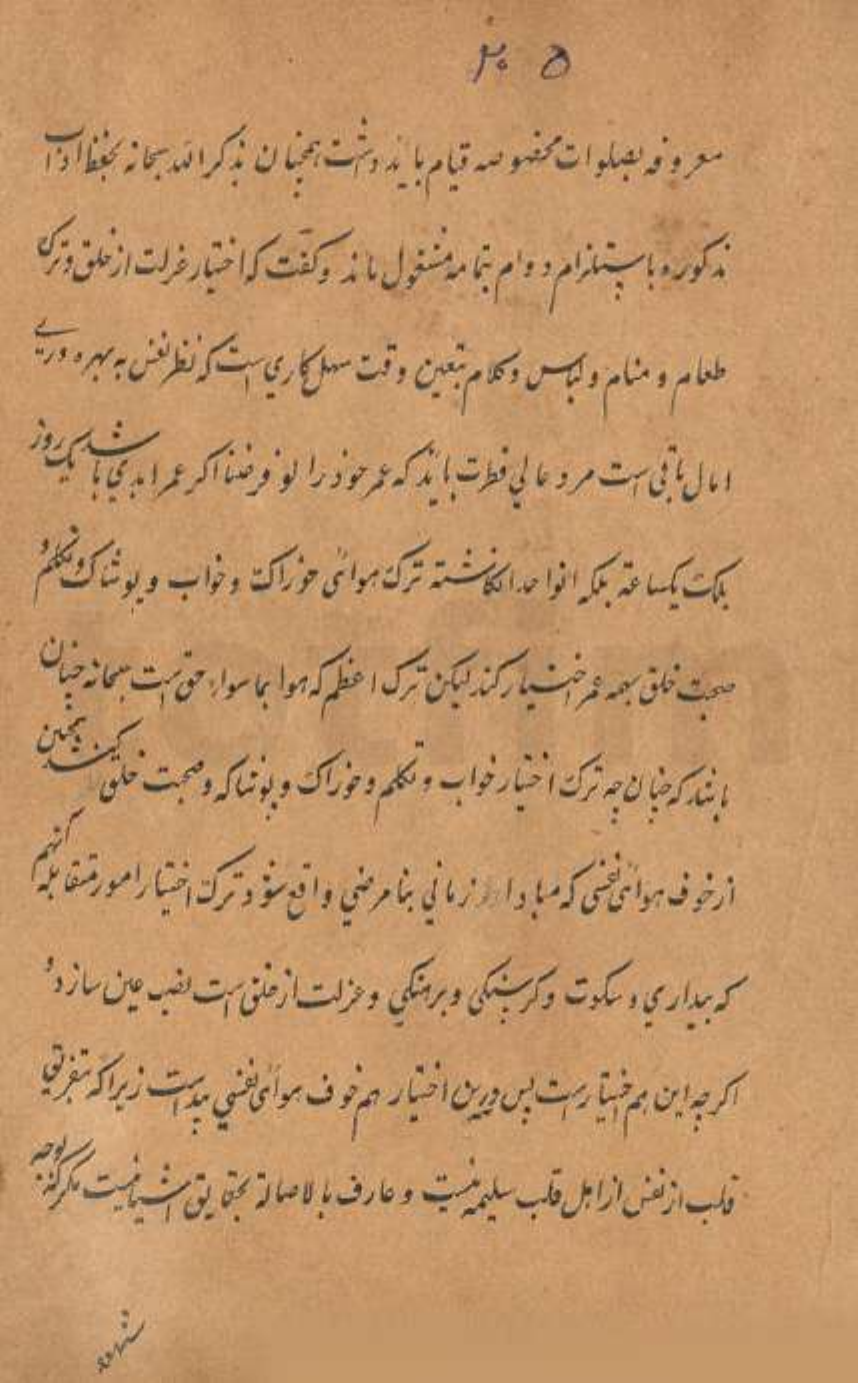 ۲۰۵
معروفه بصلوات مخصوصه قیام باید داشت همچنان بذکر الله سبحانه بحفظ اداب
مذکوره و باستلزام دوام بتمامه مشغول ماند و گفت که اختیار عزلت از خلق و ترک
طعام و منام و لباس و کلام بتعین وقت سهل کاری است که نظر نفس به بهره وری
امال باقی است مرد عالی فطرت باید که عمر خود را لو فرضنا اکر عمر ابدی باشد یک روز
بلکه یکساعة بلکه انواحد انکاشته ترک هوائی خوراک و خواب و پوشاک و تکلم و
صحبت خلق بهمه عمر اختیار کند لیکن ترک اعظم که هوا بما سواء حق است سبحانه چنان
باشد که چنان چه ترک اختیار خواب و تکلم و خوراک و پوشاکه و صحبت خلق کند همچنین
از خوف هوائی نفسی که مبادا زمانی بنا مرضی واقع شود ترک اختیار امور متقابله آنهم
که بیداری و سکوت و کرسنکی و برهنکی و عزلت از خلق است نصب عین سازد و
اکرچه این هم اختیار است پس درین اختیار هم خوف هوائی نفسی پیداست زیرا که بتفریق
قلب از نفس از اهل قلب سلیمه نیست و عارف بالاصالة بحقایق اشیا نیست مکر که بوجه